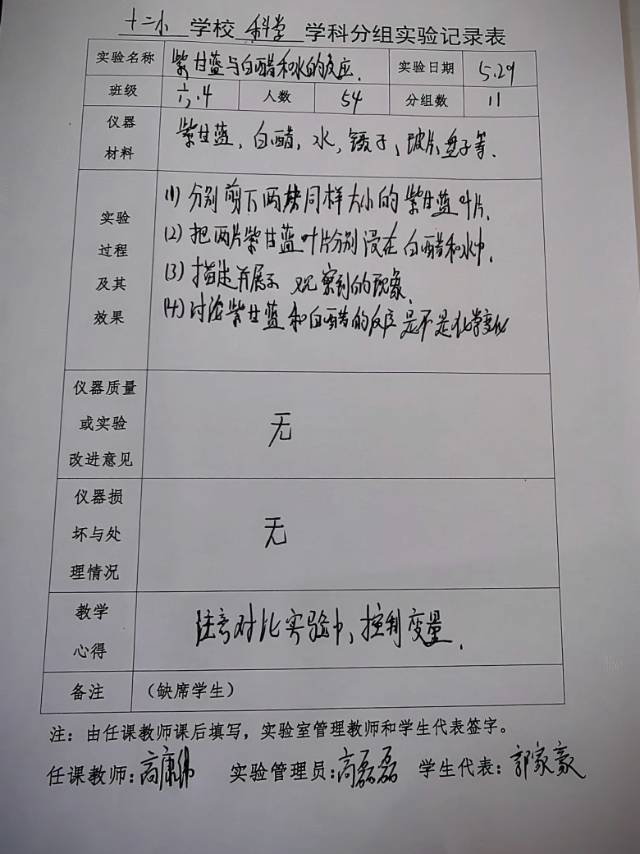 十二小 学校 科学 学科分组实验记录表
实验名称 紫甘蓝与白醋和水的反应. 实验日期 5.29
班级 六.4 人数 54 分组数 11
仪器材料 紫甘蓝, 白醋, 水, 镊子, 玻片, 盘子等.
实验过程及其效果
(1) 分别剪下两块同样大小的紫甘蓝叶片.
(2) 把两片紫甘蓝叶片分别浸在白醋和水中.
(3) 描述并展示 观察到的现象.
(4) 讨论紫甘蓝和白醋的反应是不是化学变化
仪器质量或实验改进意见 无
仪器损坏与处理情况 无
教学心得 注意对比实验中, 控制变量.
备注 (缺席学生)
注: 由任课教师课后填写, 实验室管理教师和学生代表签字。
任课教师: 高 实验管理员: 高磊磊 学生代表: 郭家豪